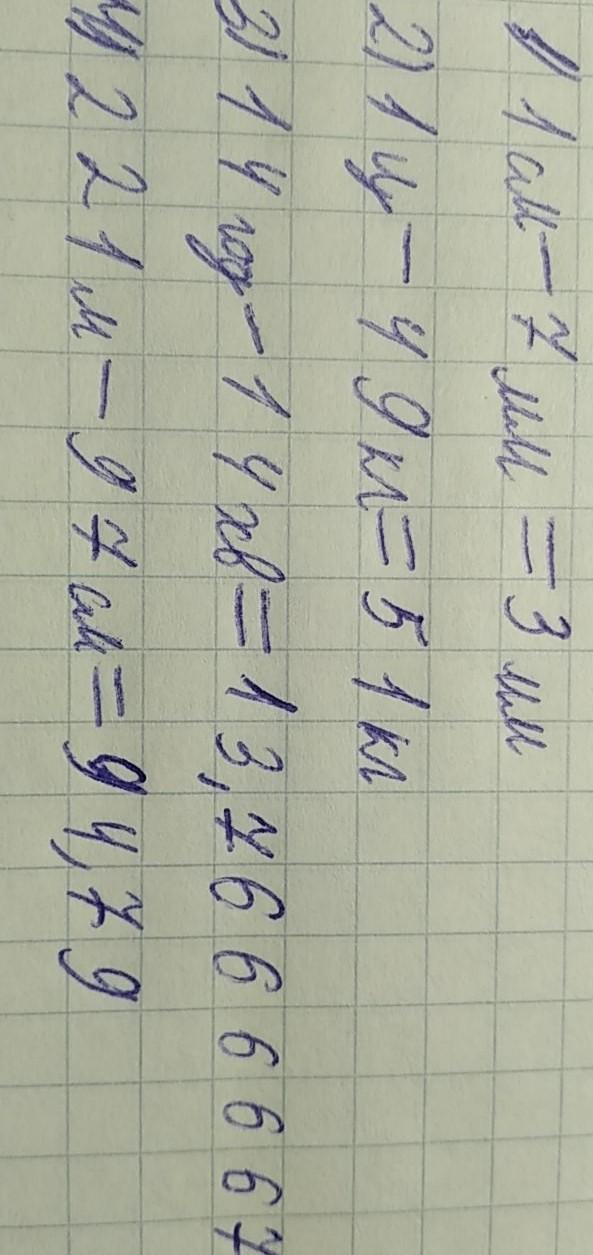 1) 1 см - 7 мм = 3 мм
2) 1 ц - 49 кг = 51 кг
3) 14 год - 14 хв = 13,7666667
4) 221 м - 97 см = 94,79